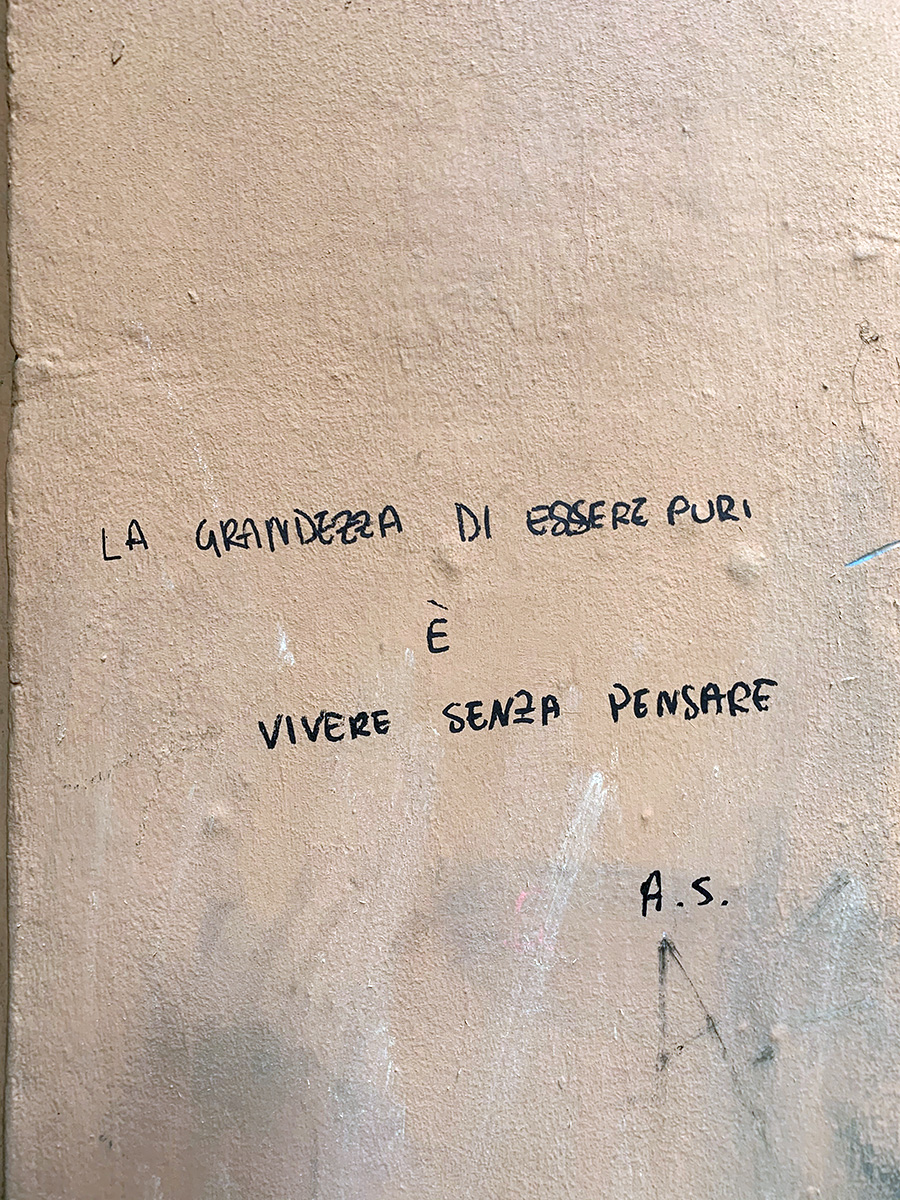 LA GRANDEZZA DI ESSERE PURI
È
VIVERE SENZA PENSARE
A.S.
A